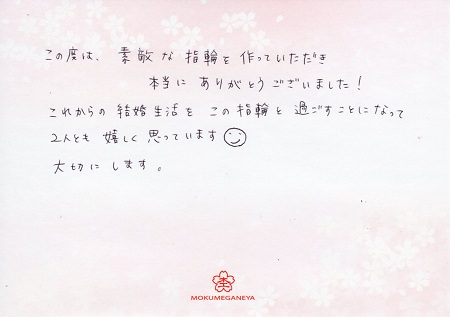 この度は、素敵な指輪を作っていただき
本当にありがとうございました！
これからの結婚生活をこの指輪と過ごすことになって
2人とも嬉しく思っています
大切にします。
MOKUMEGANEYA